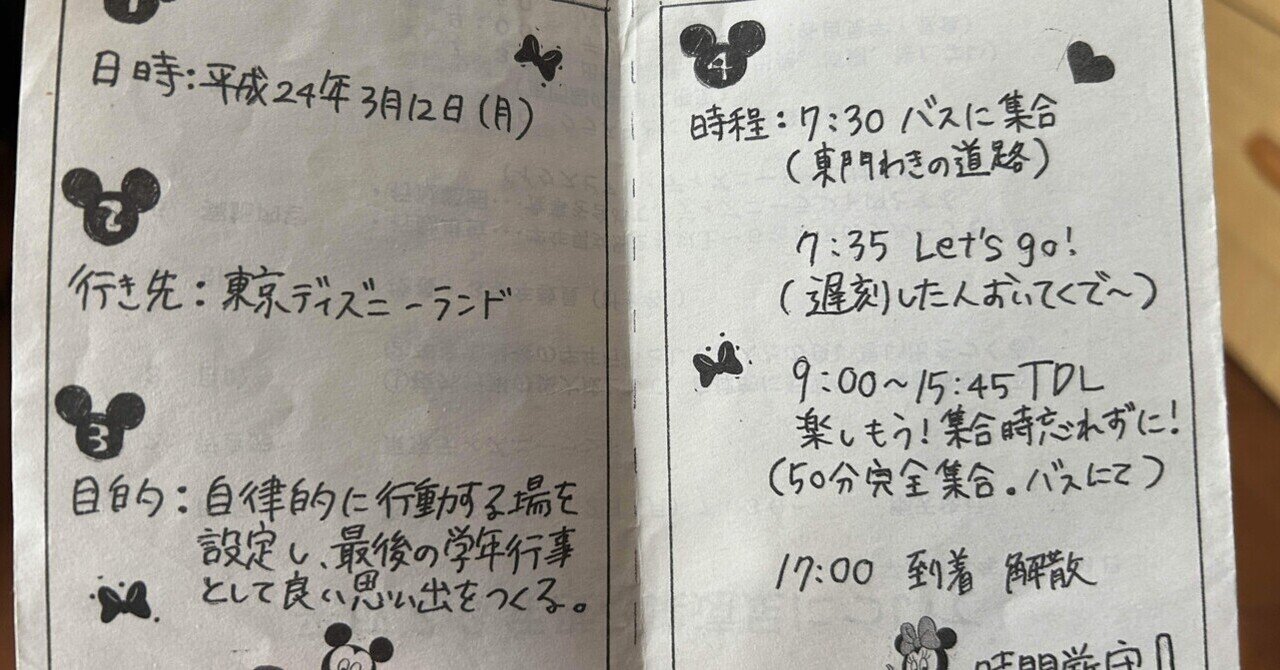 1
日時:平成24年3月12日(月)
2
行き先:東京ディズニーランド
3
目的:自律的に行動する場を
設定し、最後の学年行事
として良い思い出をつくる。
4
時程:7:30 バスに集合
(東門わきの道路)
7:35 Let's go!
(遅刻した人おいてくで～)
9:00～15:45 TDL
楽しもう!集合時忘れずに!
(50分完全集合。バスにて)
17:00 到着 解散
時間厳守!